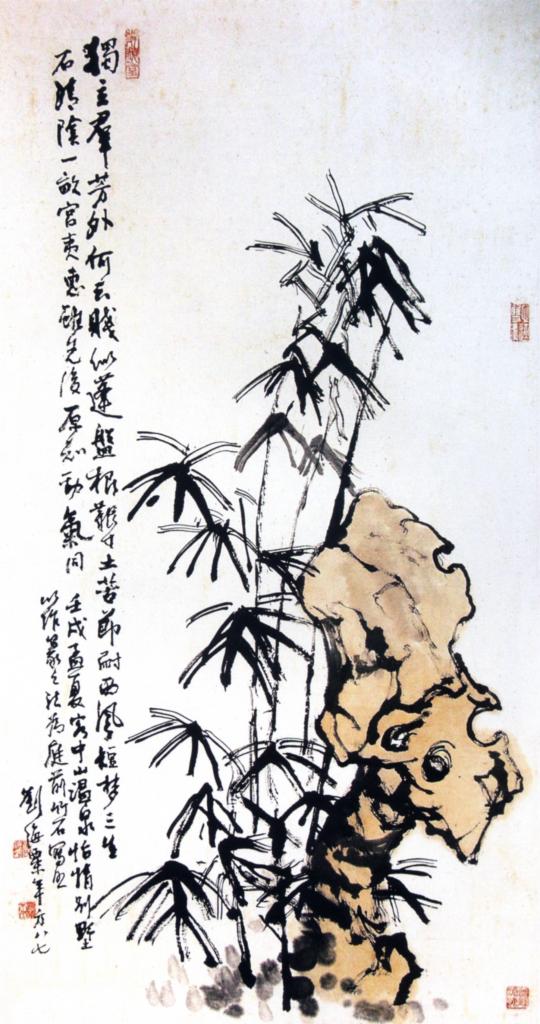 獨立羣芳外何言賤似蓬盤根艱寸土苦節耐西風短梦三生
石清陰一畝宮夷惠雖先後原知勁氣同 壬戌孟夏客中山溫泉怡情別墅
以作篆之法為庭前竹石寫照
劉海粟年方八七